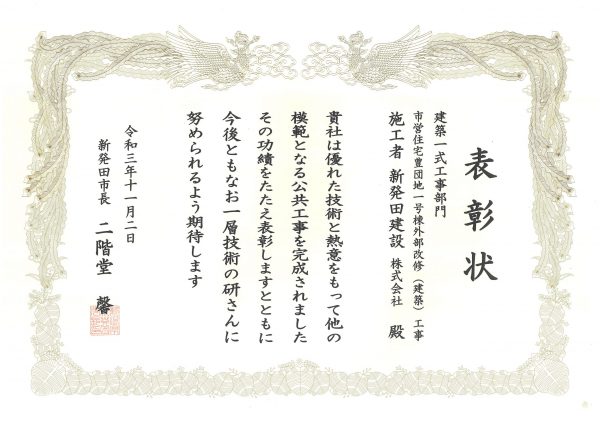 表彰状
建築一式工事部門
市営住宅豊団地一号棟外部改修（建築）工事
施工者 新発田建設 株式会社 殿
貴社は優れた技術と熱意をもって他の
模範となる公共工事を完成されました
その功績をたたえ表彰しますとともに
今後ともなお一層技術の研さんに
努められるよう期待します
令和三年十一月二日
新発田市長 二階堂 馨